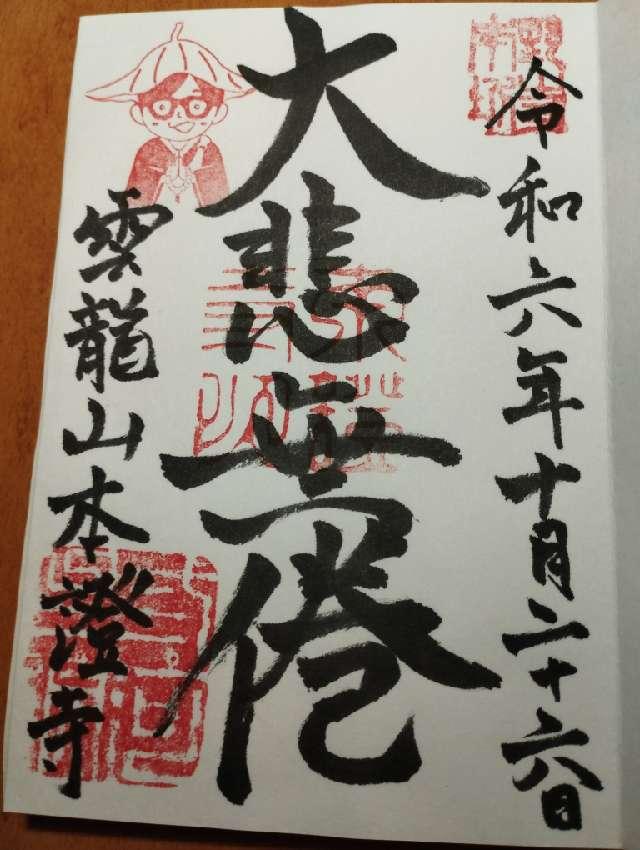 令和六年十月二十六日
大悲無倦
雲龍山本澄寺